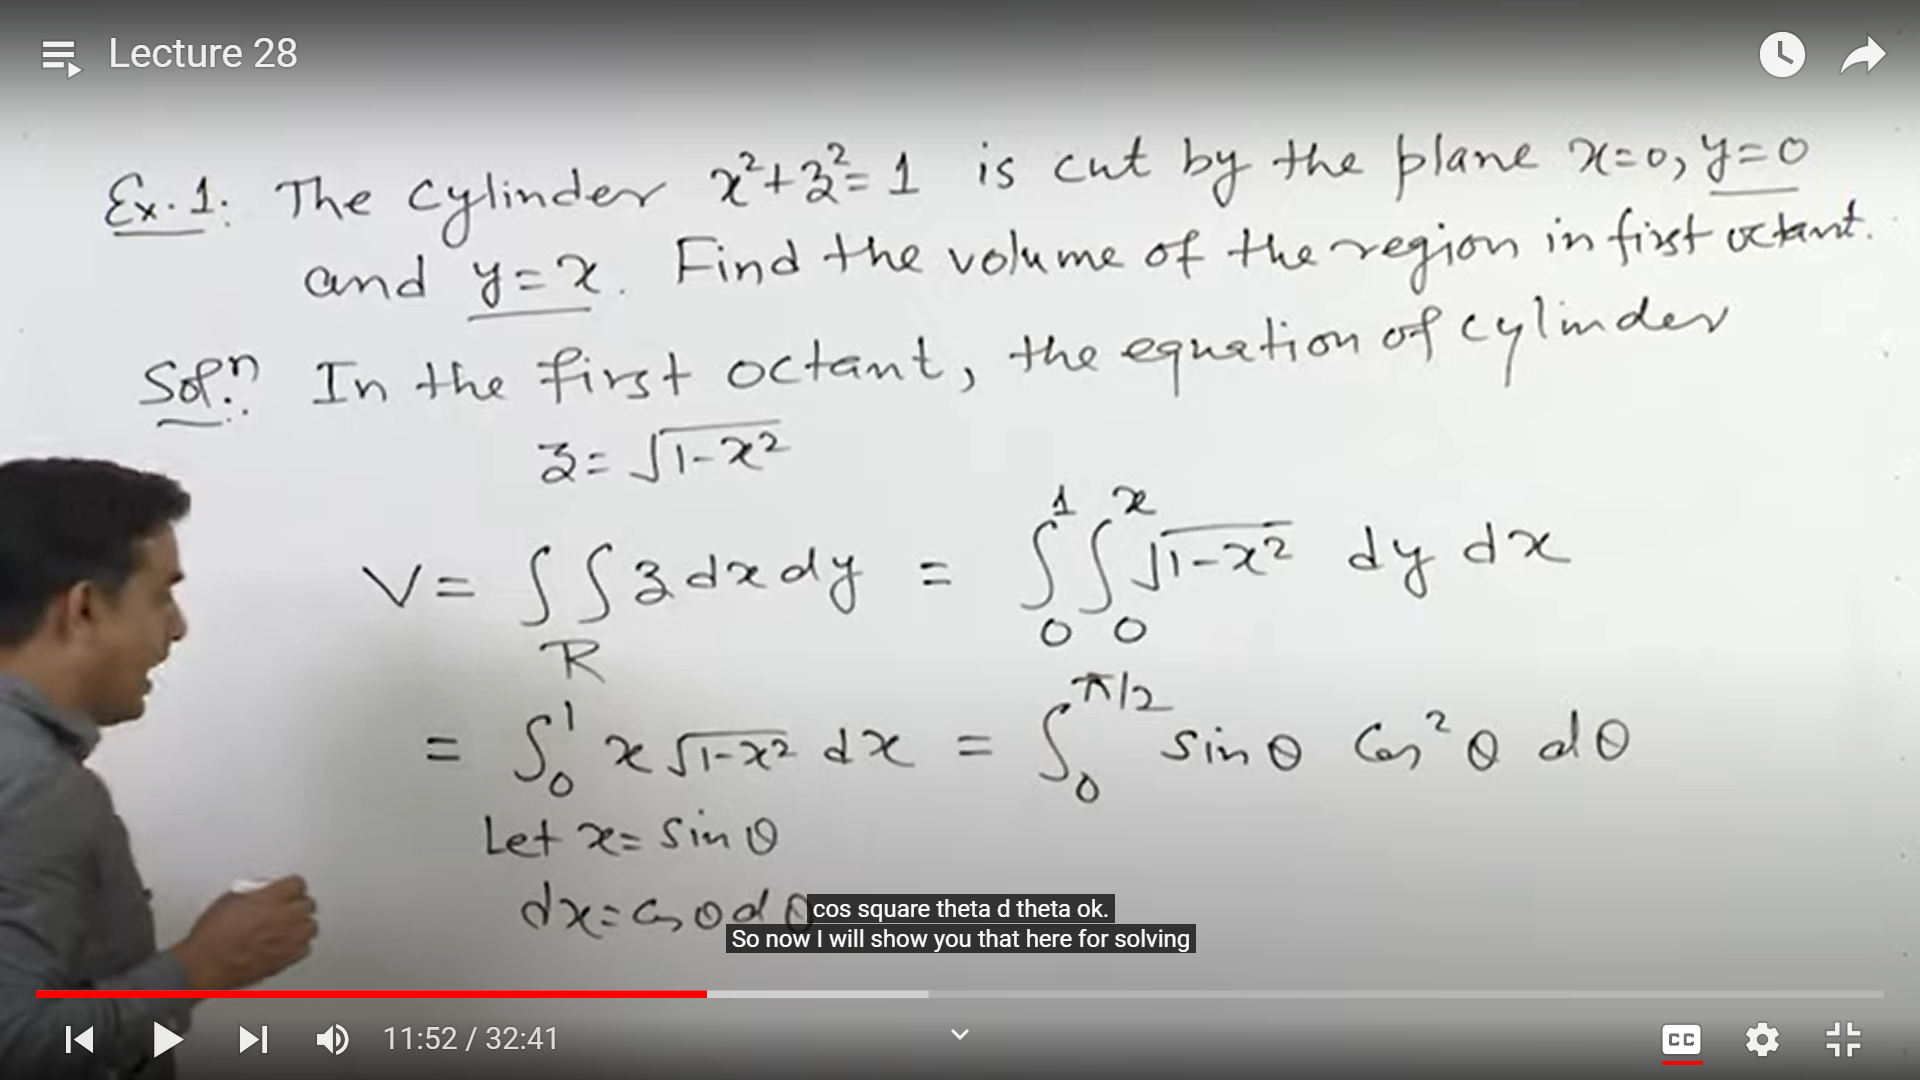 Lecture 28
Ex.1: The cylinder x²+z²=1 is cut by the plane x=0, y=0
and y=x. Find the volume of the region in first octant.
Solⁿ: In the first octant, the equation of cylinder
z=√(1-x²)
V= ∫∫_R z dx dy = ∫₀¹ ∫₀ˣ √(1-x²) dy dx
= ∫₀¹ x √(1-x²) dx = ∫₀^(π/2) sin θ Cos² θ dθ
Let x = sin θ
dx = cos θ d θ
cos square theta d theta ok.
So now I will show you that here for solving
11:52 / 32:41
CC